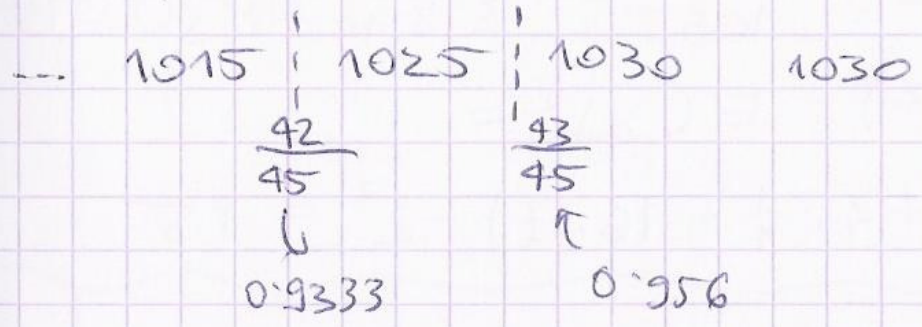 ... 1015 1025 1030 1030
42/45 43/45
0.9333 0.956